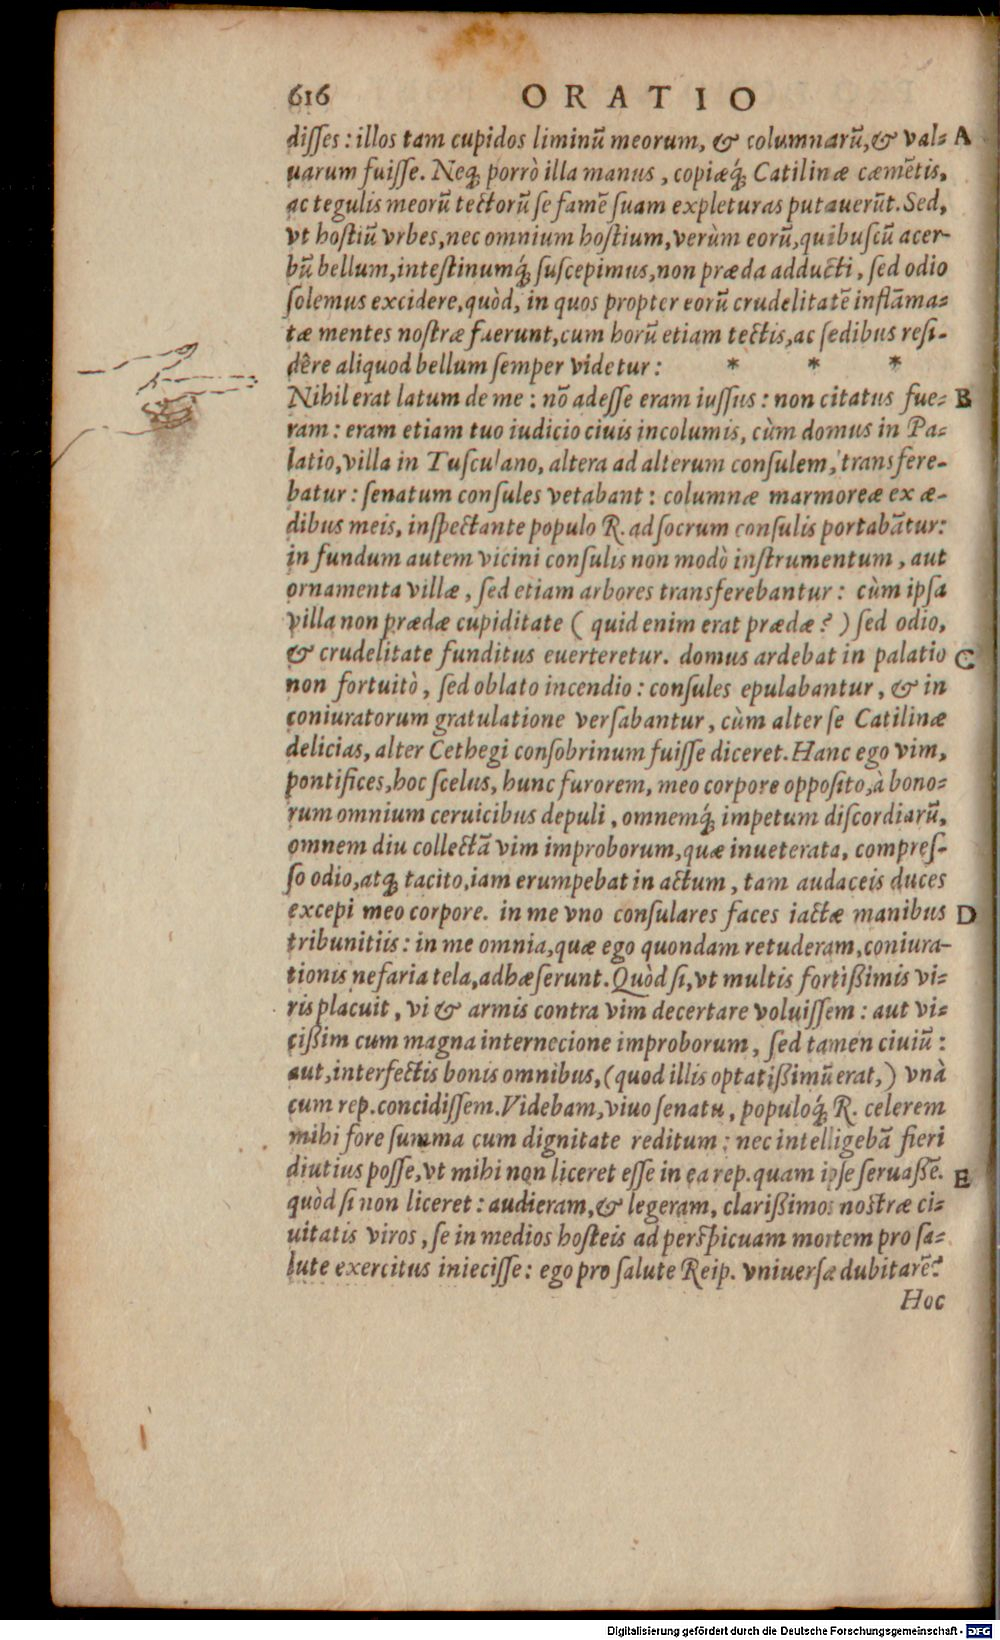 616 ORATIO
disses: illos tam cupidos liminū meorum, & columnarū, & val= A
uarum fuisse. Neq; porrò illa manus, copiæq́; Catilinæ cæmētis,
ac tegulis meorū tectorū se famē suam expleturas putauerūt. Sed,
vt hostiū vrbes, nec omnium hostium, verùm eorū, quibuscū acer-
bū bellum, intestinumq́; suscepimus, non præda adducti, sed odio
solemus excidere, quòd, in quos propter eorū crudelitatē inflāma=
tæ mentes nostræ fuerunt, cum horū etiam tectis, ac sedibus resi-
dêre aliquod bellum semper videtur: * * *
Nihil erat latum de me: nō adesse eram iussus: non citatus fue= B
ram: eram etiam tuo iudicio ciuis incolumis, cùm domus in Pa=
latio, villa in Tusculano, altera ad alterum consulem, transfere-
batur: senatum consules vetabant: columnæ marmoreæ ex æ-
dibus meis, inspectante populo R. ad socrum consulis portabātur:
in fundum autem vicini consulis non modò instrumentum, aut
ornamenta villæ, sed etiam arbores transferebantur: cùm ipsa
villa non prædæ cupiditate ( quid enim erat prædæ? ) sed odio,
& crudelitate funditus euerteretur. domus ardebat in palatio C
non fortuitò, sed oblato incendio: consules epulabantur, & in
coniuratorum gratulatione versabantur, cùm alter se Catilinæ
delicias, alter Cethegi consobrinum fuisse diceret. Hanc ego vim,
pontifices, hoc scelus, hunc furorem, meo corpore opposito, à bono=
rum omnium ceruicibus depuli, omnemq́; impetum discordiarū,
omnem diu collectā vim improborum, quæ inueterata, compres-
so odio, atq; tacito, iam erumpebat in actum, tam audaceis duces
excepi meo corpore. in me vno consulares faces iactæ manibus D
tribunitiis: in me omnia, quæ ego quondam retuderam, coniura-
tionis nefaria tela, adhæserunt. Quòd si, vt multis fortißimis vi=
ris placuit, vi & armis contra vim decertare voluissem: aut vi=
cißim cum magna internecione improborum, sed tamen ciuiū:
aut, interfectis bonis omnibus, (quod illis optatißimū erat,) vnà
cum rep. concidissem. Videbam, viuo senatu, populoq́; R. celerem
mihi fore summa cum dignitate reditum: nec intelligebā fieri
diutius posse, vt mihi non liceret esse in ea rep. quam ipse seruaßē. E
quòd si non liceret: audieram, & legeram, clarißimos nostræ ci=
uitatis viros, se in medios hosteis ad perspicuam mortem pro sa=
lute exercitus iniecisse: ego pro salute Reip. vniuersæ dubitarē?
Hoc
Digitalisierung gefördert durch die Deutsche Forschungsgemeinschaft - DFG